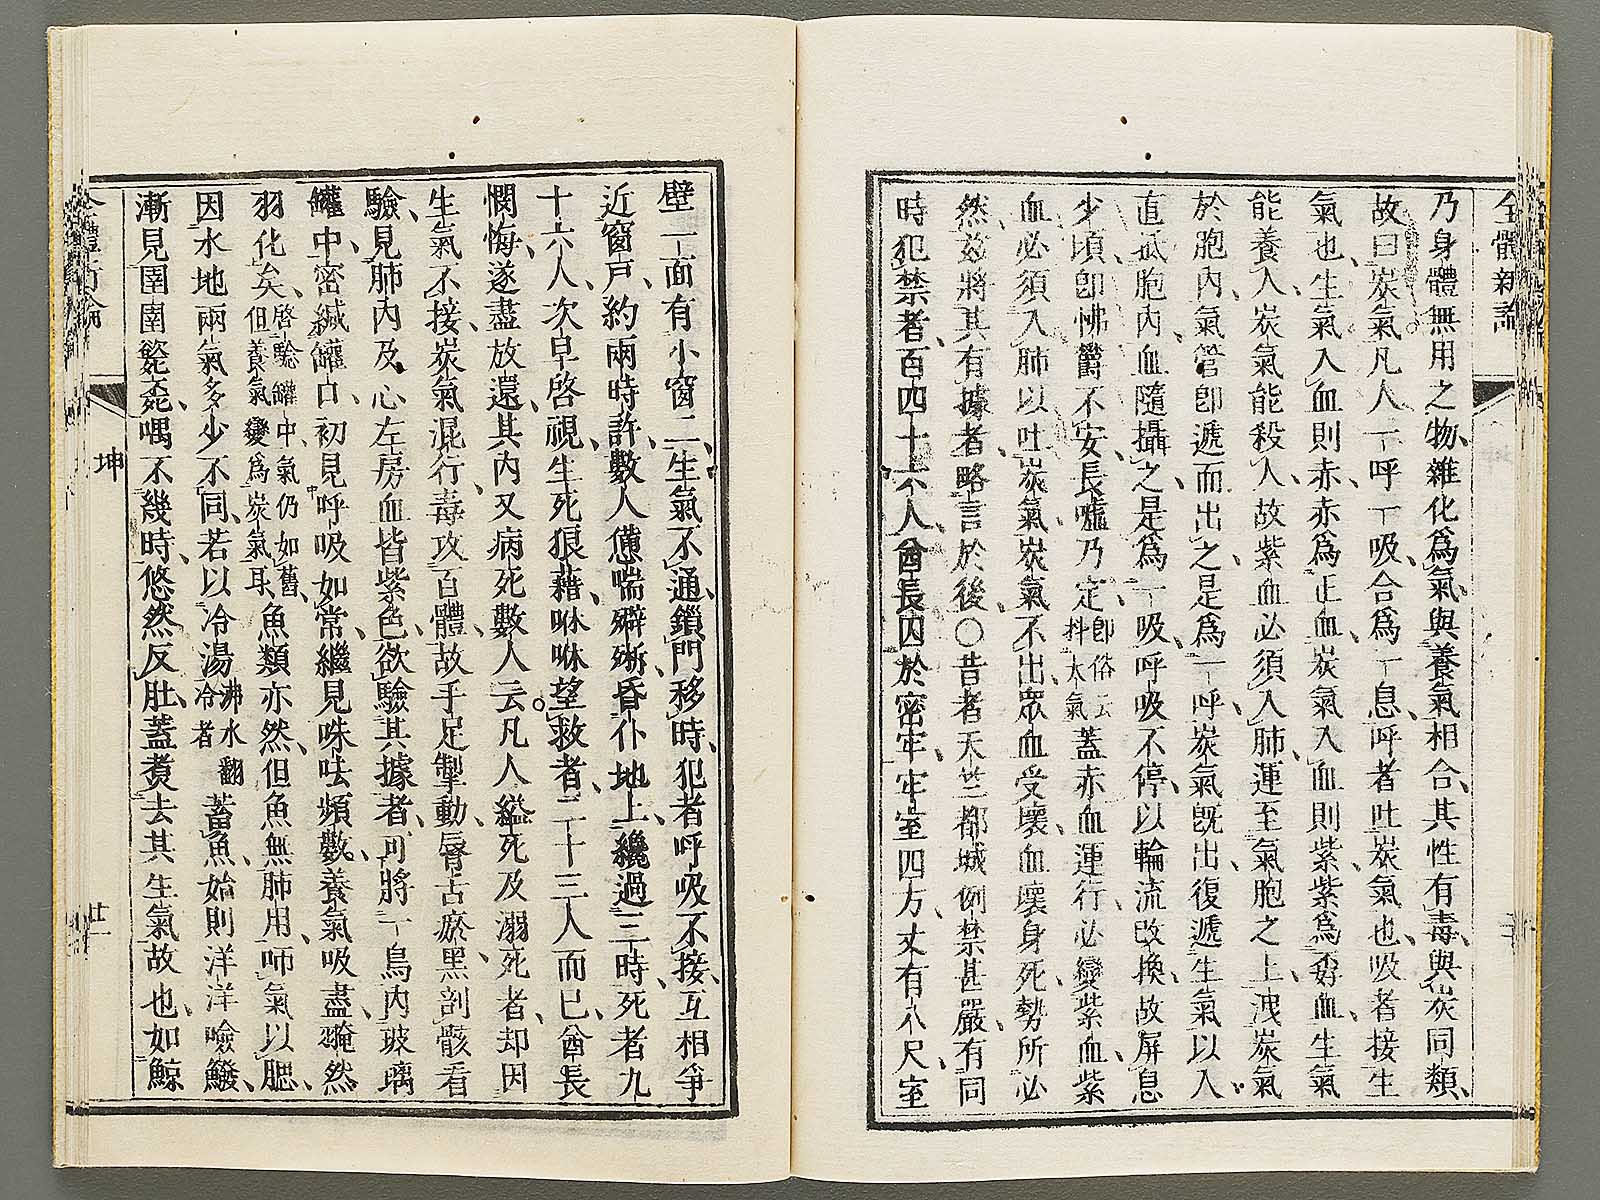 全體新論
乃身體無用之物雜化為氣與養氣相合其性有毒與炭同類
故曰炭氣凡人一呼一吸合為一息呼者吐炭氣也吸者接生
氣也生氣入血則赤赤為正血炭氣入血則紫紫為歹血生氣
能養人炭氣能殺人故紫血必須入肺運至氣胞之上洩炭氣
於胞內氣管即遞而出之是為一呼炭氣既出復遞生氣以入
直抵胞內血隨攝之是為一吸呼吸不停以輪流改換故屏息
少頃即怫鬱不安長噓乃定即俗云抖大氣蓋赤血運行必變紫血紫
血必須入肺以吐炭氣炭氣不出眾血受壞血壞身死勢所必
然茲將其有據者略言於後〇昔者天竺都城例禁甚嚴有同
時犯禁者百四十六人酋長囚於密牢牢室四方丈有八尺室
壁一面有小窗二生氣不通鎖門移時犯者呼吸不接互相爭
近窗戶約兩時許數人憊喘癖㾷昏仆地上纔過三時死者九
十六人次早啓視生死狼藉咻咻望救者二十三人而已酋長
憫悔遂盡放還其內又病死數人云凡人縊死及溺死者却因
生氣不接炭氣混行毒攻百體故手足掣動唇舌瘀黑剖骸看
驗見肺內及心左房血皆紫色欲驗其據者可將一鳥內玻璃
罐中密緘罐口初見呼吸如常繼見咮呿頻數養氣吸盡奄然
羽化矣啓驗罐中氣仍如舊但養氣變為炭氣耳魚類亦然但魚無肺用呷氣以腮
因水地兩氣多少不同若以冷湯沸水翻冷者蓄魚始則洋洋噞鰠
漸見圉圉㲯㲯喁不幾時悠然反肚蓋煑去其生氣故也如鯨
坤
廿一